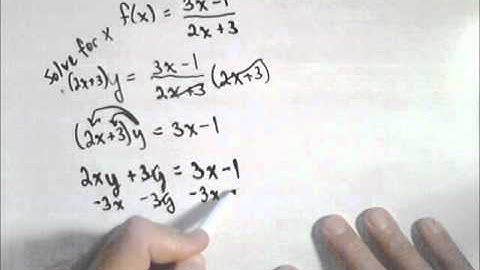 f(x) = 3x-1 / 2x+3
solve for x
(2x+3)y = 3x-1 / 2x+3 (2x+3)
(2x+3)y = 3x-1
2xy + 3y = 3x-1
-3x -3y -3x